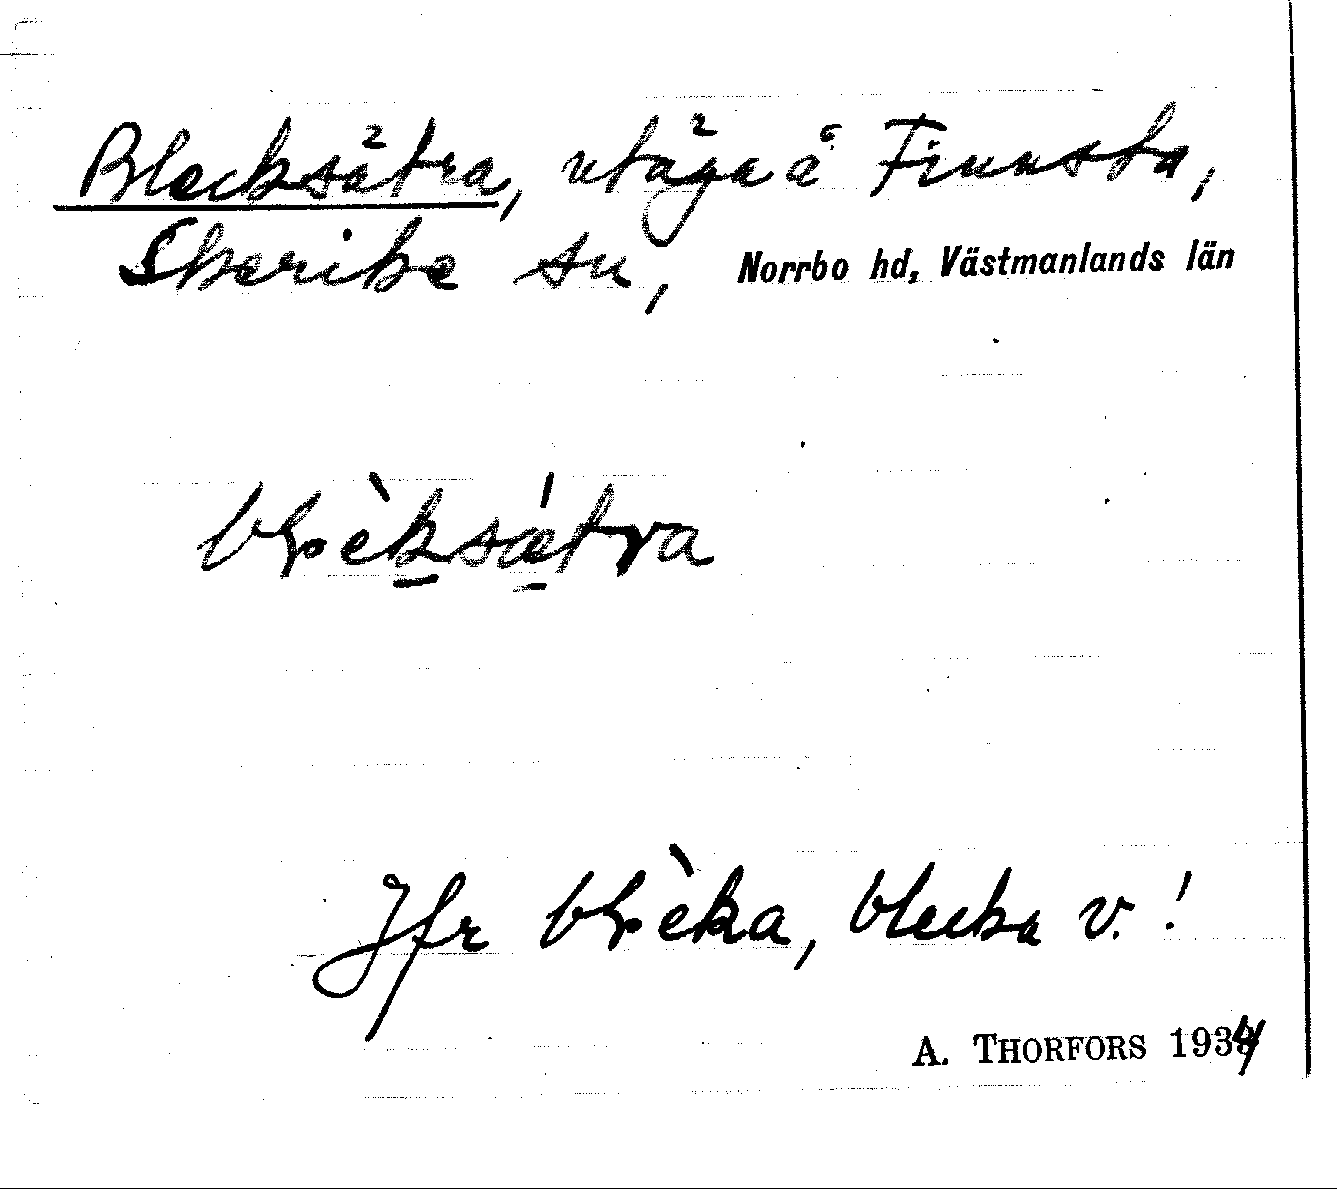 Blecksätra, utäga å Finnsta,
Skerike sn, Norrbo hd, Västmanlands län
bḷèksǽtra
Jfr bḷèka, blecka v.!
A. THORFORS 1934